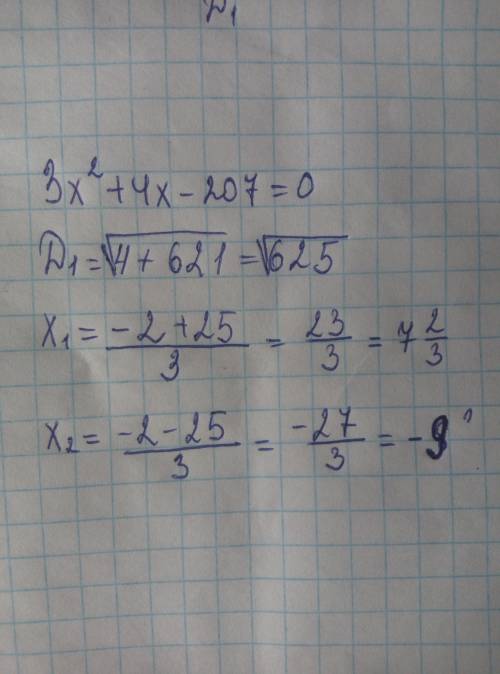 D₁
3x² + 4x - 207 = 0
D₁ = √4 + 621 = √625
x₁ = (-2 + 25)/3 = 23/3 = 7 2/3
x₂ = (-2 - 25)/3 = -27/3 = -9